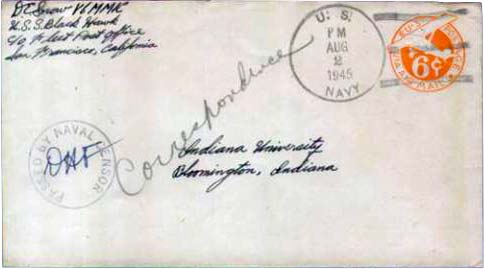 D.C. Snow V6 MMR
U.S.S. Black Hawk
c/o Fleet Post Office
San Francisco, California
U. S.
PM
AUG
2
1945
NAVY
6¢
VIA AIR MAIL
Correspondence
PASSED BY NAVAL CENSOR
DHF
Indiana University
Bloomington, Indiana